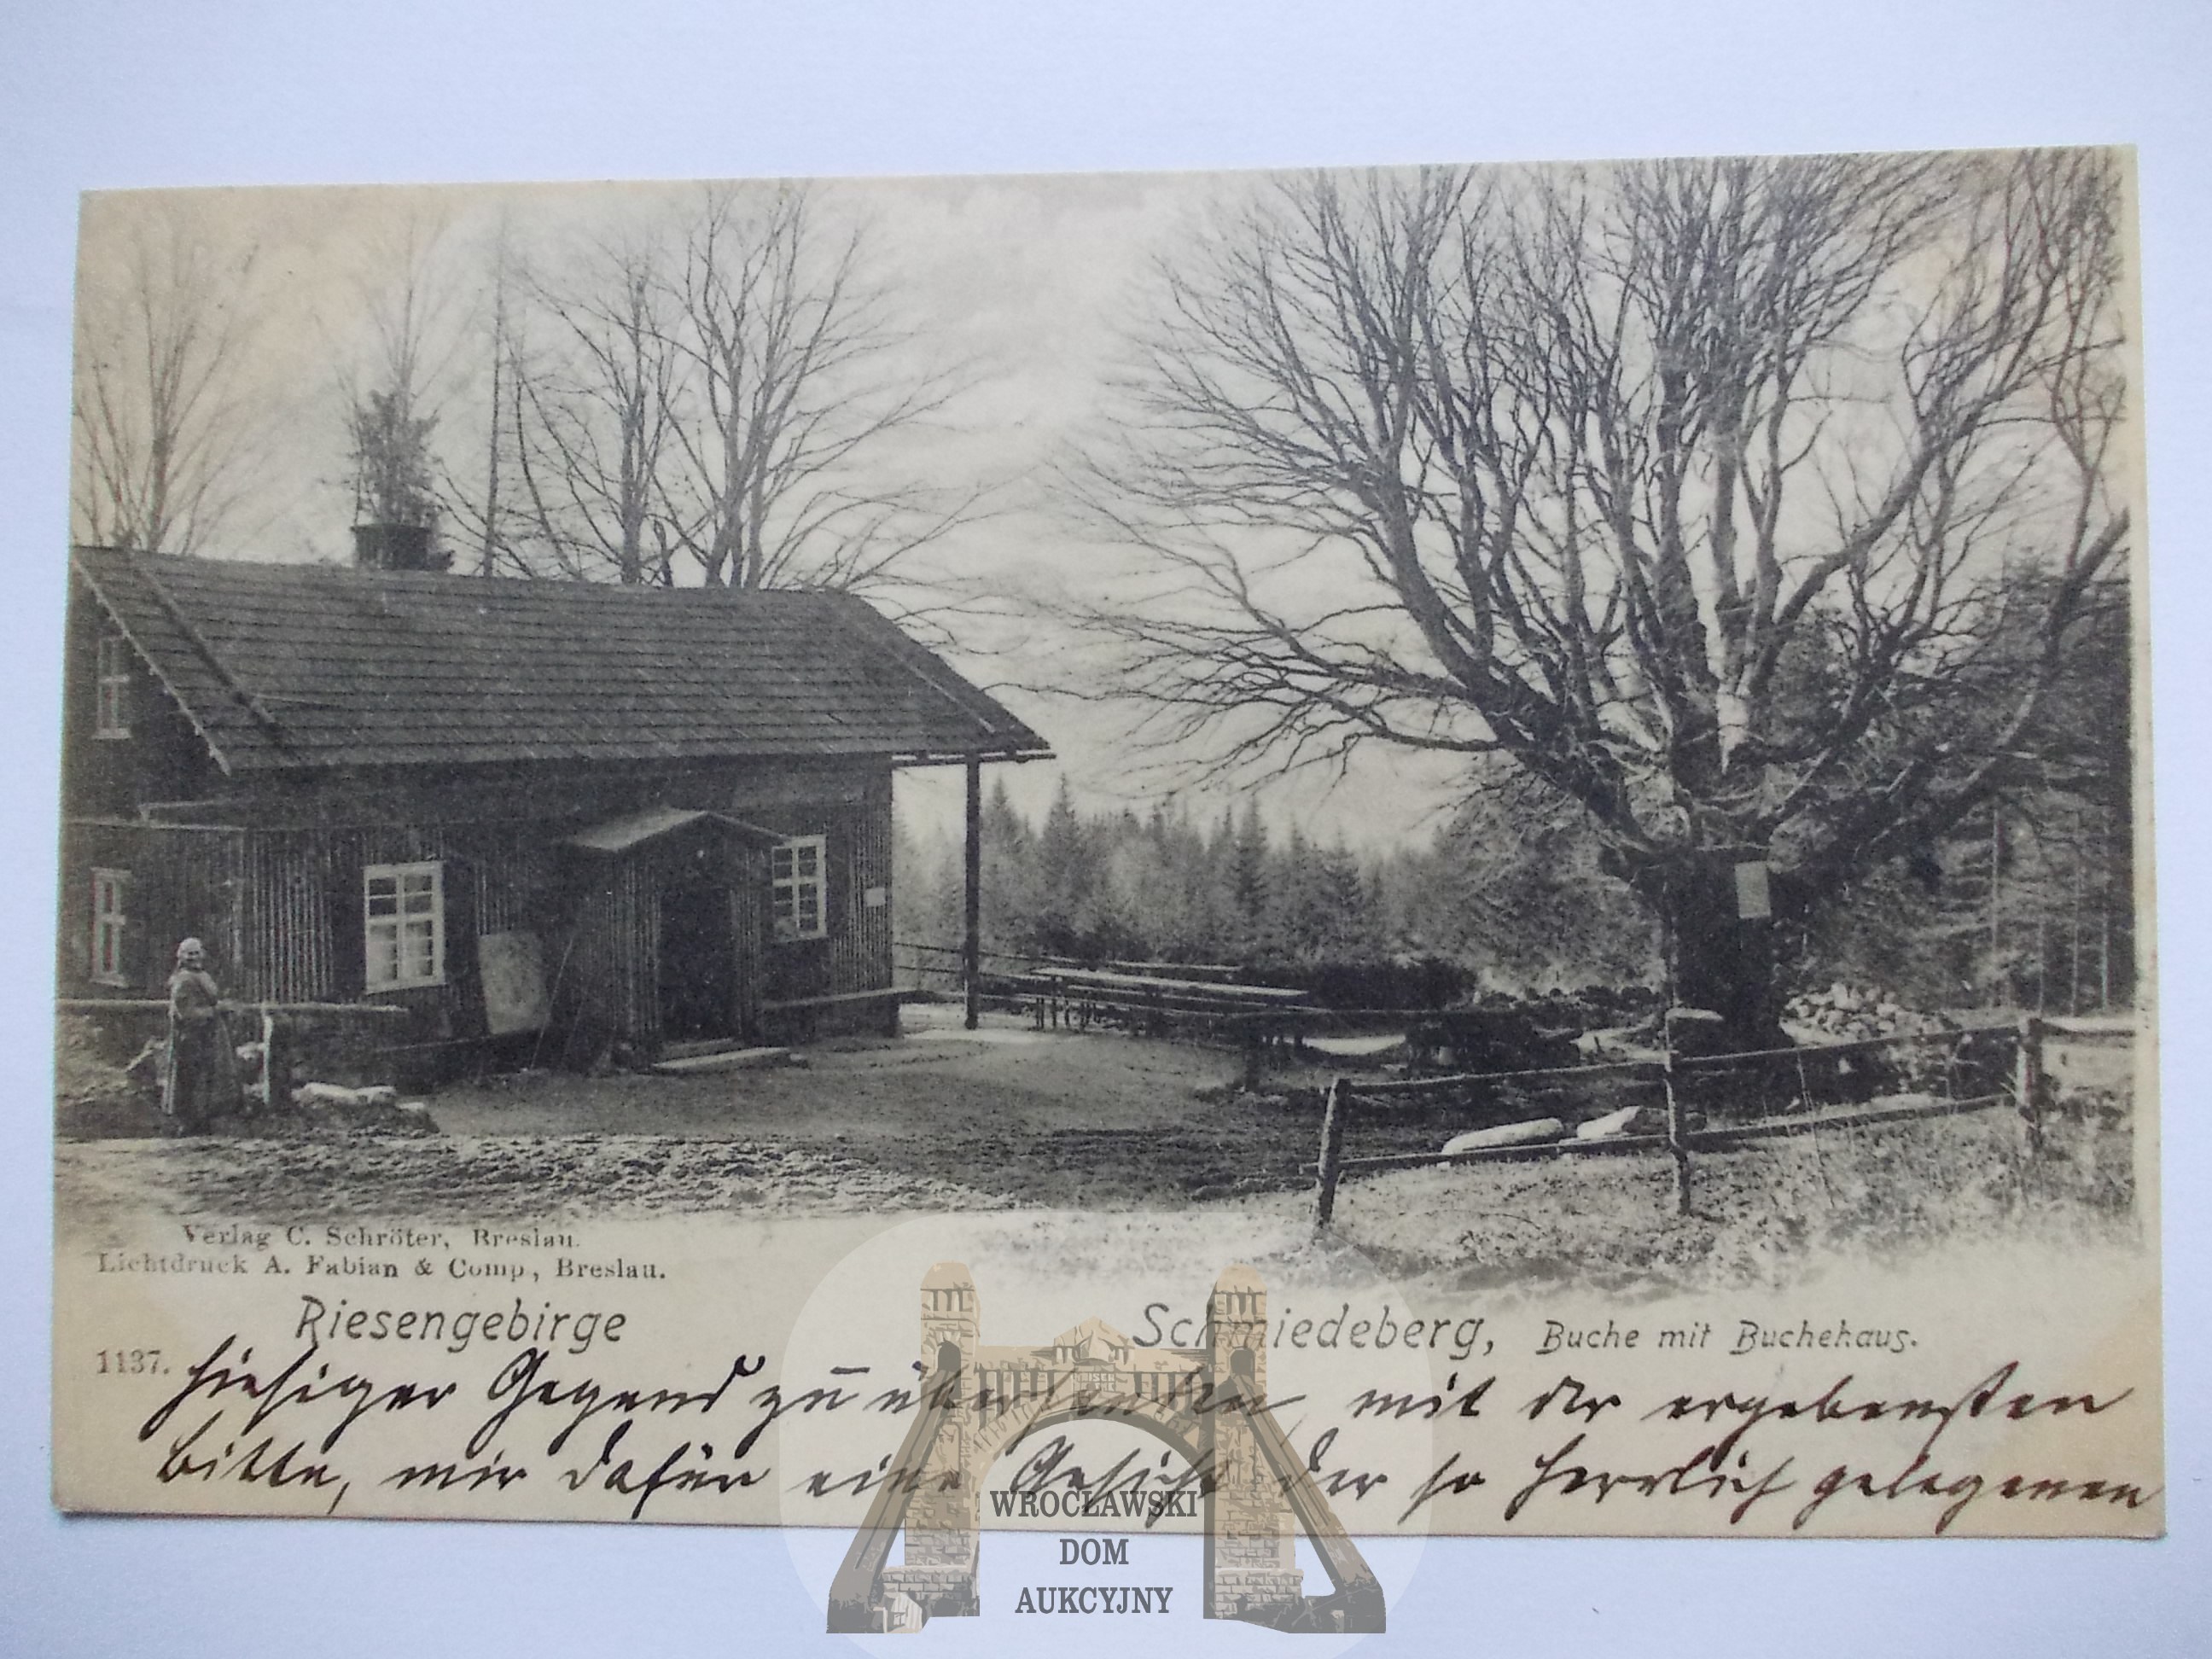 Verlag C. Schröter, Breslau.
Lichtdruck A. Fabian & Comp., Breslau.
Riesengebirge
Schmiedeberg, Buche mit Buchehaus.
1137.
hiesiger Gegend zu übersenden, mit der ergebensten
Bitte, mir dafür eine Ansicht der so herrlich gelegenen
WROCŁAWSKI
DOM
AUKCYJNY